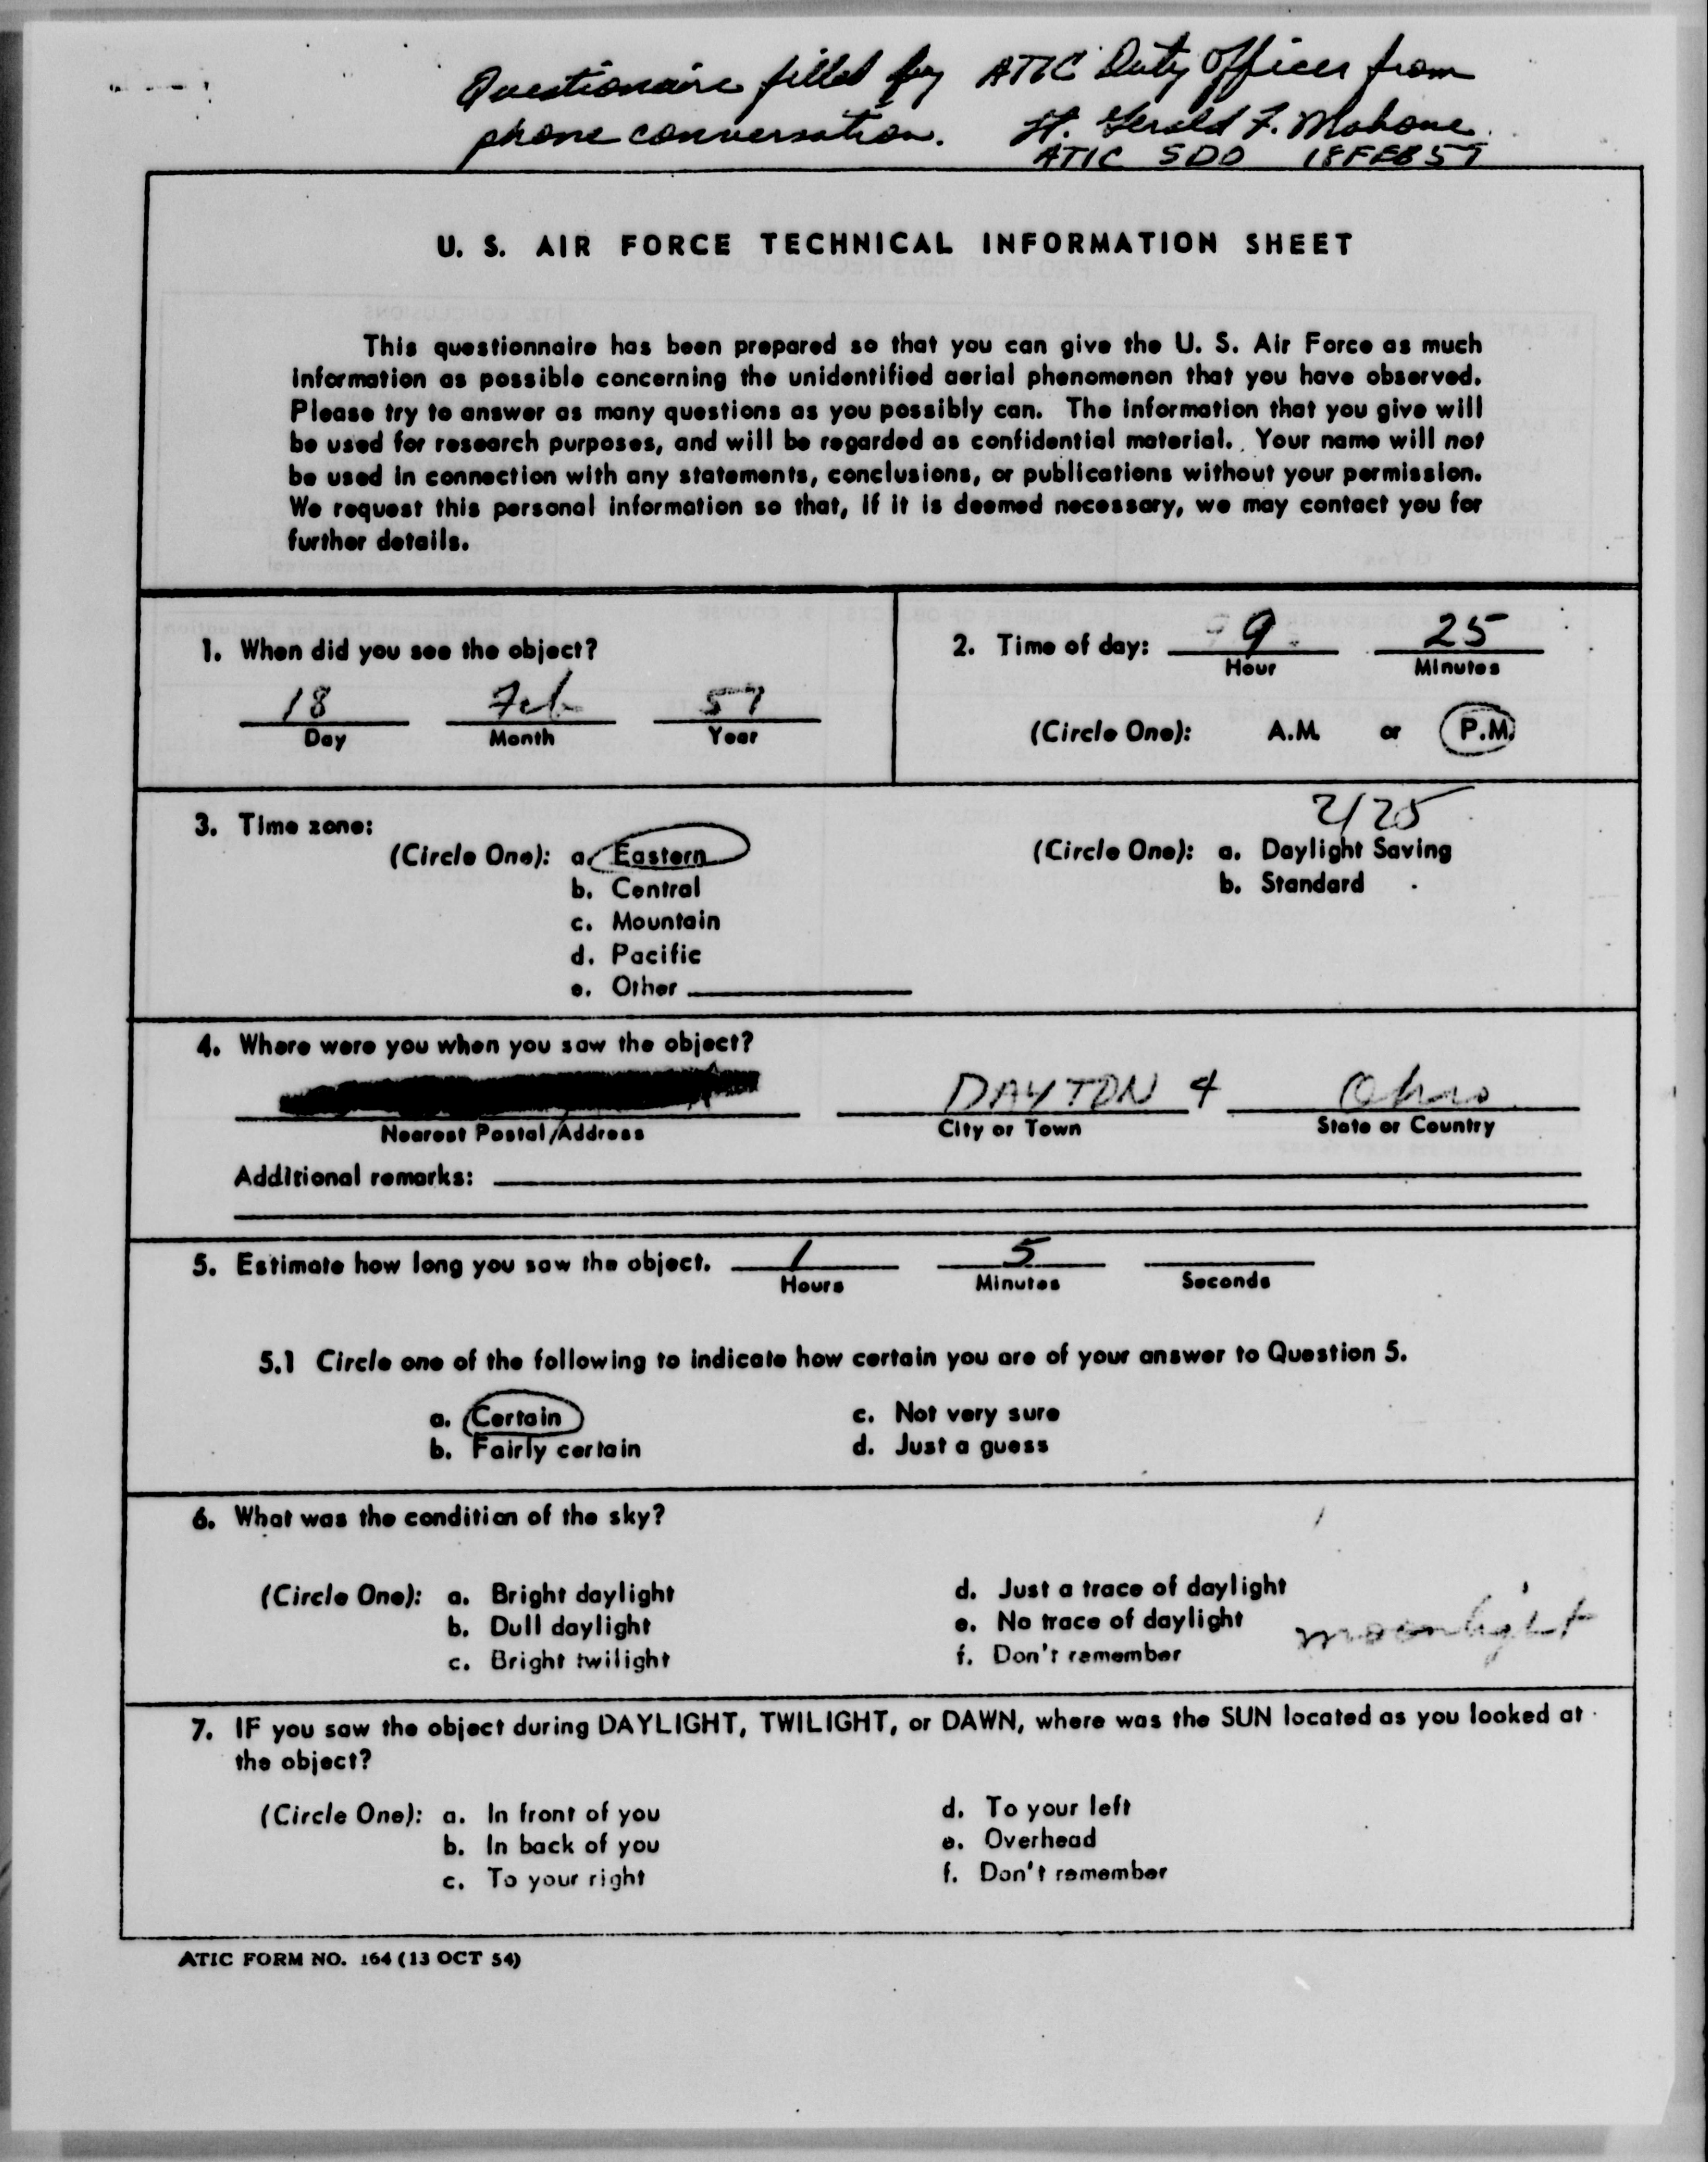 Questionaire filled by ATIC Duty Officer from
phone conversation. Lt. Gerald F. Mahone
ATIC SDO 18 FEB 57
U. S. AIR FORCE TECHNICAL INFORMATION SHEET
This questionnaire has been prepared so that you can give the U. S. Air Force as much
information as possible concerning the unidentified aerial phenomenon that you have observed.
Please try to answer as many questions as you possibly can. The information that you give will
be used for research purposes, and will be regarded as confidential material. Your name will not
be used in connection with any statements, conclusions, or publications without your permission.
We request this personal information so that, if it is deemed necessary, we may contact you for
further details.
1. When did you see the object?
18 Feb 57
Day Month Year
2. Time of day: 9 25
Hour Minutes
(Circle One): A.M. or P.M.
3. Time zone:
(Circle One): a. Eastern
b. Central
c. Mountain
d. Pacific
e. Other
2125
(Circle One): a. Daylight Saving
b. Standard
4. Where were you when you saw the object?
DAYTON 4 Ohio
Nearest Postal Address City or Town State or Country
Additional remarks:
5. Estimate how long you saw the object. 1 5
Hours Minutes Seconds
5.1 Circle one of the following to indicate how certain you are of your answer to Question 5.
a. Certain c. Not very sure
b. Fairly certain d. Just a guess
6. What was the condition of the sky?
(Circle One): a. Bright daylight d. Just a trace of daylight
b. Dull daylight e. No trace of daylight moonlight
c. Bright twilight f. Don't remember
7. IF you saw the object during DAYLIGHT, TWILIGHT, or DAWN, where was the SUN located as you looked at
the object?
(Circle One): a. In front of you d. To your left
b. In back of you e. Overhead
c. To your right f. Don't remember
ATIC FORM NO. 164 (13 OCT 54)